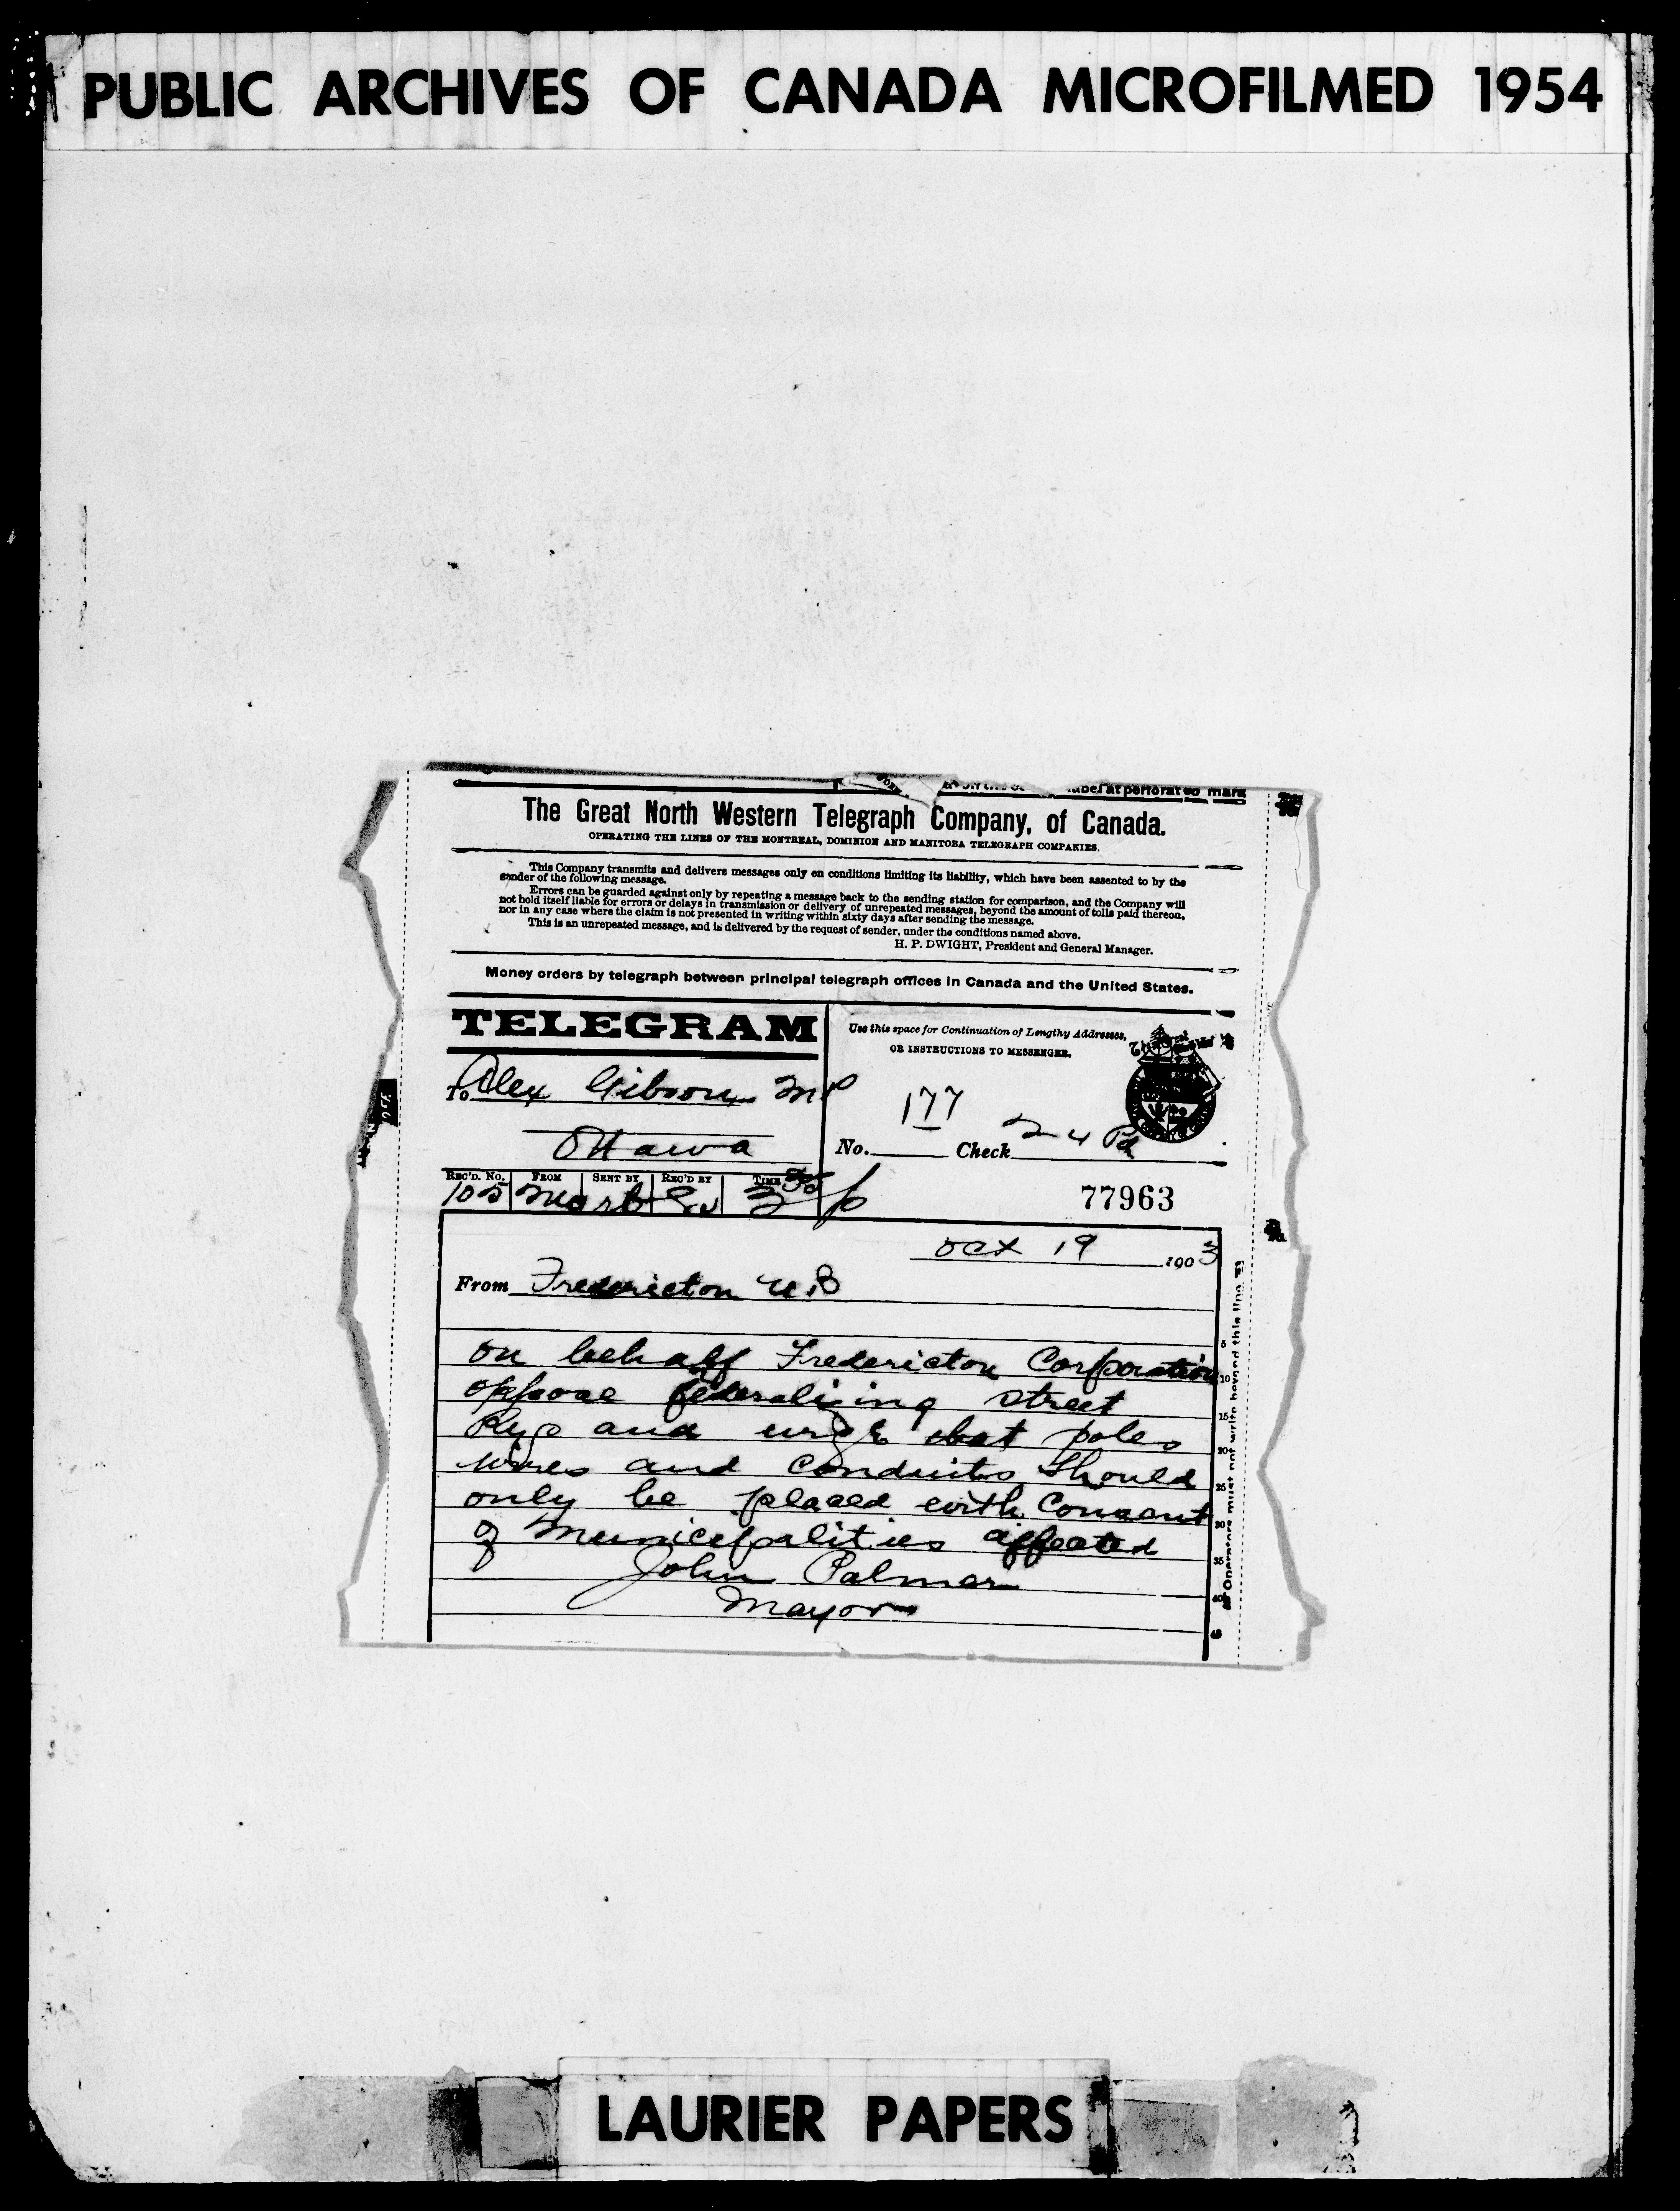 PUBLIC ARCHIVES OF CANADA MICROFILMED 1954
mark
The Great North Western Telegraph Company, of Canada.
OPERATING THE LINES OF THE MONTREAL, DOMINION AND MANITOBA TELEGRAPH COMPANIES.
This Company transmits and delivers messages only on conditions limiting its liability, which have been assented to by the
sender of the following message.
Errors can be guarded against only by repeating a message back to the sending station for comparison, and the Company will
not hold itself liable for errors or delays in transmission or delivery of unrepeated messages, beyond the amount of tolls paid thereon,
nor in any case where the claim is not presented in writing within sixty days after sending the message.
This is an unrepeated message, and is delivered by the request of sender, under the conditions named above.
H. P. DWIGHT, President and General Manager.
Money orders by telegraph between principal telegraph offices in Canada and the United States.
TELEGRAM
Use this space for Continuation of Lengthy Addresses,
OR INSTRUCTIONS TO MESSENGER.
To Alex Gibson MP
Ottawa
177
No. Check 24 Pd
REC'D. No. FROM SENT BY REC'D BY TIME
105
77963
Oct 19 1903
From Fredericton N.B
5
on behalf Fredericton Corporation
10
oppose federalising street
15
Rys and urge that poles
20
wires and conduits should
25
only be placed with consent
30
of municipalities affected
35
John Palmer
40
Mayor
45
Operators must not write beyond this line
LAURIER PAPERS